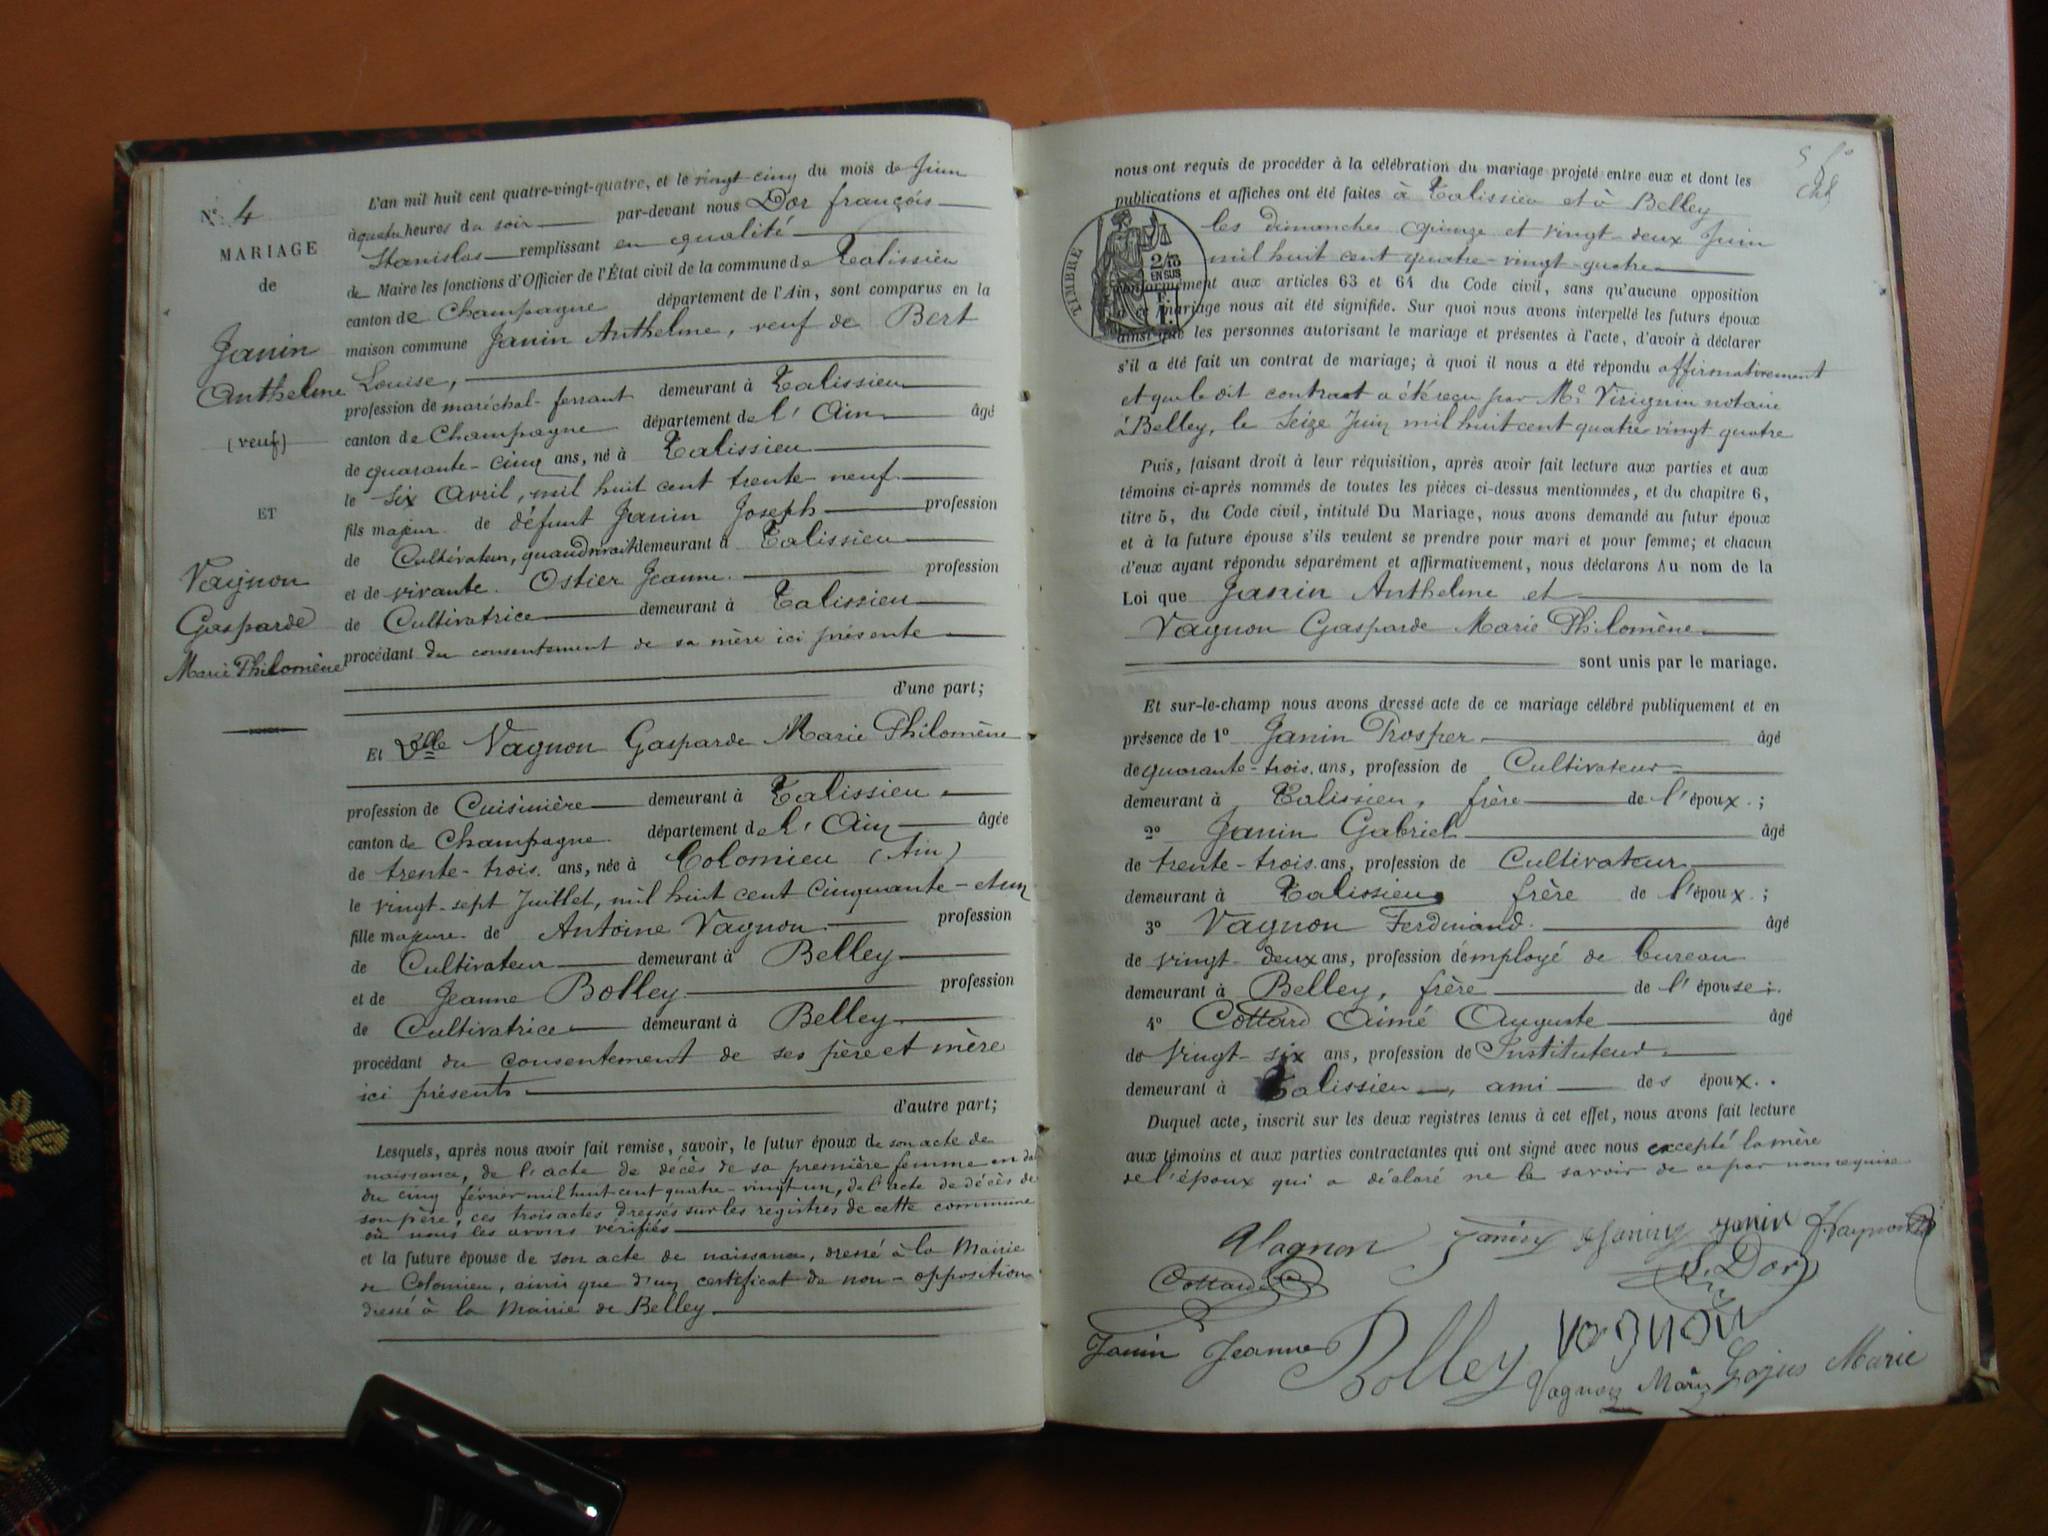 N° 4
MARIAGE
de
Janin
Anthelme
(veuf)
ET
Vagnon
Gasparde
Marie Philomène
L'an mil huit cent quatre-vingt-quatre, et le vingt-cinq du mois de Juin
à quatre heures du soir par-devant nous Dor françois
Stanislas remplissant en qualité
de Maire les fonctions d'Officier de l'État civil de la commune de Talissieu
canton de Champagne département de l'Ain, sont comparus en la
maison commune Janin Anthelme, veuf de Bert
Louise,
profession de maréchal-ferrant demeurant à Talissieu
canton de Champagne département de l'Ain âgé
de quarante-cinq ans, né à Talissieu
le six Avril, mil huit cent trente-neuf
fils majeur de défunt Janin Joseph profession
de Cultivateur, quand vivait demeurant à Talissieu
et de vivante Ostier Jeanne profession
de Cultivatrice demeurant à Talissieu
procédant du consentement de sa mère ici présente
d'une part;
Et Dlle Vagnon Gasparde Marie Philomène
profession de Cuisinière demeurant à Talissieu
canton de Champagne département de l'Ain âgée
de trente-trois ans, née à Colomieu (Ain)
le vingt-sept Juillet, mil huit cent cinquante-et un
fille majeure de Antoine Vagnon profession
de Cultivateur demeurant à Belley
et de Jeanne Bolley profession
de Cultivatrice demeurant à Belley
procédant du consentement de ses père et mère
ici présents
d'autre part;
Lesquels, après nous avoir fait remise, savoir, le futur époux de son acte de
naissance, de l'acte de décès de sa première femme en date
du cinq février mil huit cent quatre-vingt un, de l'acte de décès de
son père, ces trois actes dressés sur les registres de cette commune
où nous les avons vérifiés
et la future épouse de son acte de naissance, dressé à la Mairie
de Colomieu, ainsi que d'un certificat de non-opposition
dressé à la Mairie de Belley
nous ont requis de procéder à la célébration du mariage projeté entre eux et dont les
publications et affiches ont été faites à Talissieu et à Belley
les dimanches quinze et vingt-deux Juin
mil huit cent quatre-vingt-quatre
TIMBRE
2/10
EN SUS
conformément aux articles 63 et 64 du Code civil, sans qu'aucune opposition
à ce mariage nous ait été signifiée. Sur quoi nous avons interpellé les futurs époux
ainsi que les personnes autorisant le mariage et présentes à l'acte, d'avoir à déclarer
s'il a été fait un contrat de mariage; à quoi il nous a été répondu affirmativement
et que le dit contrat a été reçu par Me notaire
à Belley, le Seize Juin mil huit cent quatre vingt quatre
Puis, faisant droit à leur réquisition, après avoir fait lecture aux parties et aux
témoins ci-après nommés de toutes les pièces ci-dessus mentionnées, et du chapitre 6,
titre 5, du Code civil, intitulé Du Mariage, nous avons demandé au futur époux
et à la future épouse s'ils veulent se prendre pour mari et pour femme; et chacun
d'eux ayant répondu séparément et affirmativement, nous déclarons Au nom de la
Loi que Janin Anthelme et
Vagnon Gasparde Marie Philomène
sont unis par le mariage.
Et sur-le-champ nous avons dressé acte de ce mariage célébré publiquement et en
présence de 1° Janin Prosper âgé
de quarante-trois ans, profession de Cultivateur
demeurant à Talissieu, frère de l'époux;
2° Janin Gabriel âgé
de trente-trois ans, profession de Cultivateur
demeurant à Talissieu, frère de l'époux;
3° Vagnon Ferdinand âgé
de vingt-deux ans, profession d'employé de bureau
demeurant à Belley, frère de l'épouse;
4° Cottard Aimé Auguste âgé
de vingt-six ans, profession de Instituteur
demeurant à Talissieu, ami des époux.
Duquel acte, inscrit sur les deux registres tenus à cet effet, nous avons fait lecture
aux témoins et aux parties contractantes qui ont signé avec nous excepté la mère
de l'époux qui a déclaré ne le savoir de ce par nous requise
Vagnon Janin Janin Janin Vagnon
Cottard S. Dor
Janin Jeanne Bolley Vagnon
Vagnon Marie Gojus Marie